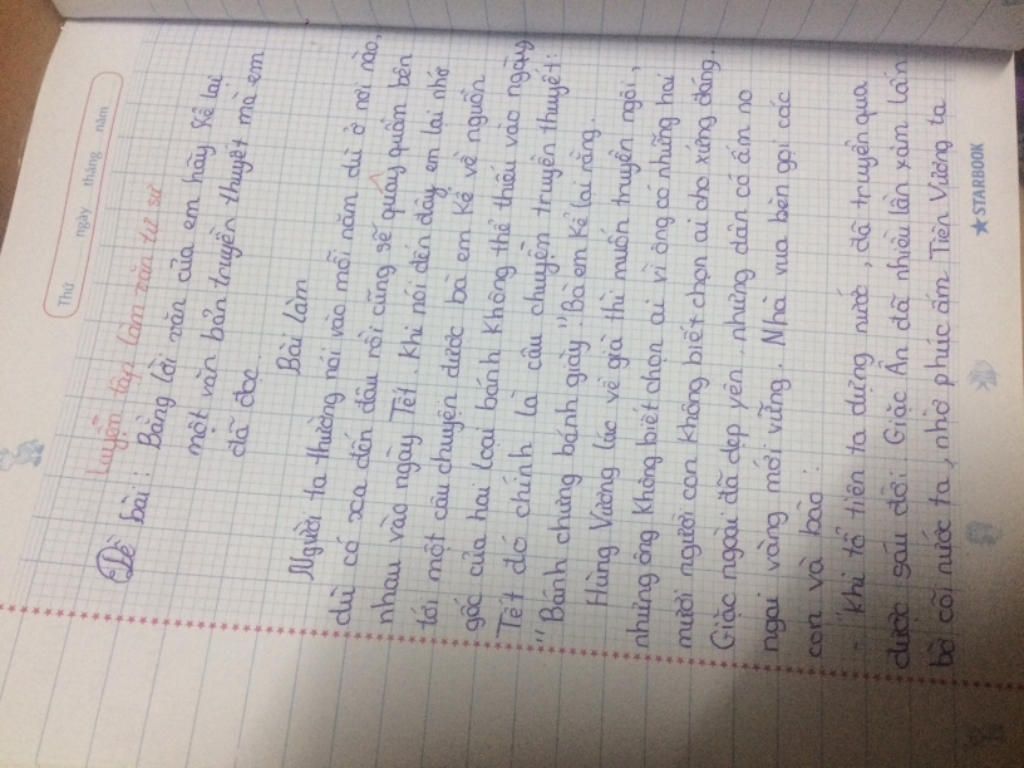 Thứ ngày tháng năm
Luyện tập làm văn tự sự
Đề bài: Bằng lời văn của em hãy kể lại
một văn bản truyền thuyết mà em
đã đọc.
Bài làm
Người ta thường nói vào mỗi năm dù ở nơi nào,
dù có xa đến đâu rồi cũng sẽ quay quần bên
nhau vào ngày Tết. Khi nói đến đây em lại nhớ
tới một câu chuyện được bà em kể về nguồn
gốc của hai loại bánh không thể thiếu vào ngày
Tết đó chính là câu chuyện truyền thuyết:
"Bánh chưng bánh giày". Bà em kể lại rằng.
Hùng Vương lúc về già thì muốn truyền ngôi,
nhưng ông không biết chọn ai vì ông có những hai
mươi người con không biết chọn ai cho xứng đáng.
Giặc ngoài đã dẹp yên. nhưng dân có ấm no
ngai vàng mới vững. Nhà vua bèn gọi các
con và bảo:
- "Khi tổ tiên ta dựng nước, đã truyền qua
được sáu đời. Giặc Ân đã nhiều lần xâm lấn
bờ cõi nước ta, nhờ phúc ấm Tiên Vương ta
★ STARBOOK